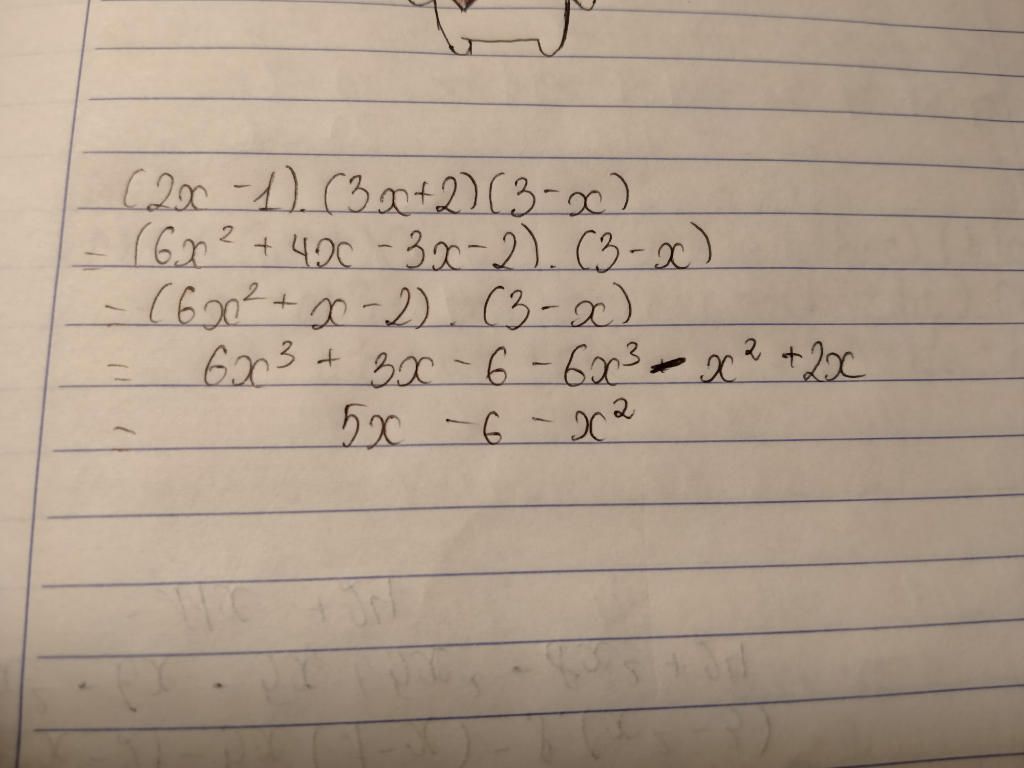 (2x - 1).(3x+2)(3-x)
= (6x² + 4x - 3x - 2).(3-x)
= (6x² + x - 2).(3-x)
= 6x³ + 3x - 6 - 6x³ - x² + 2x
= 5x - 6 - x²